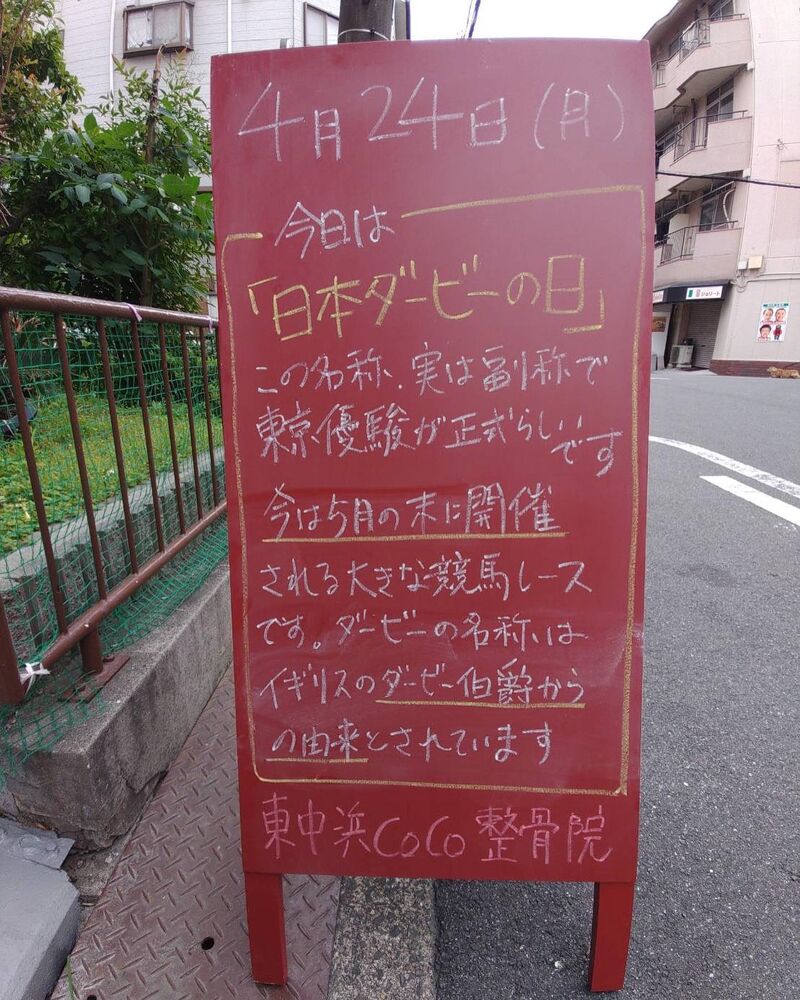 4月24日(月)
今日は
「日本ダービーの日」
この名称、実は副称で
東京優駿が正式らしいです
今は5月の末に開催
される大きな競馬レース
です。ダービーの名称は
イギリスのダービー伯爵から
の由来とされています
東中浜CoCo整骨院